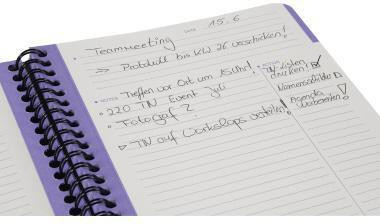 DATE 15.6
Teammeeting
→ Protokoll bis KW 26 verschicken!
NOTES Treffen vor Ort um 15 Uhr!
220 TN Event Juli
Fotograf?
▷ TN auf Workshops verteilen!
ACTION
TN-Listen
drucken!
Namensschilder
Agenda
vorbereiten!